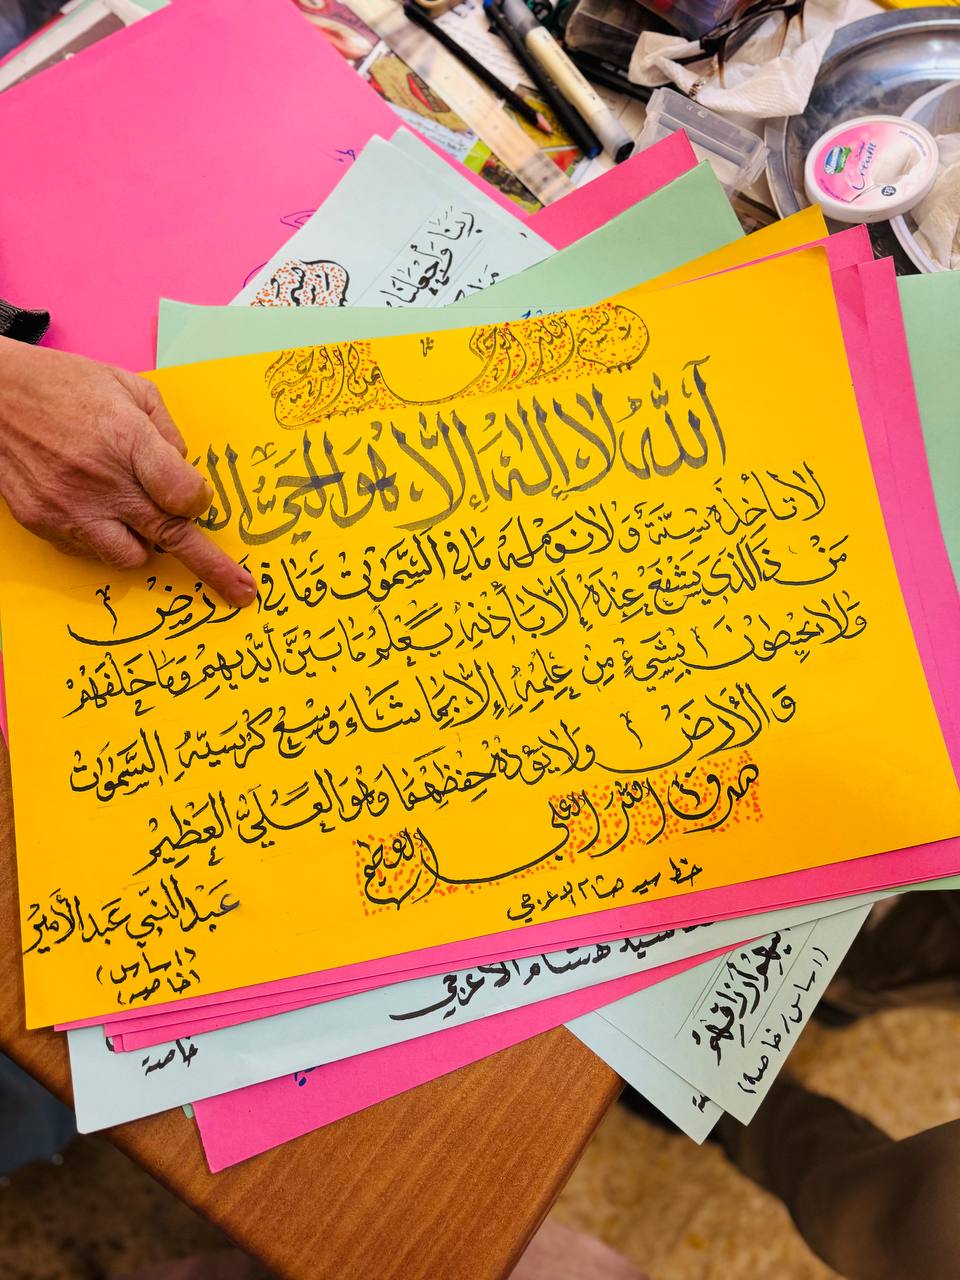 ربنا وأجعلنا
بسم الله الرحمن الرحيم
الله لا إله إلا هو الحي
لا تأخذه سنة ولا نوم له ما في السموات وما في الأرض
من ذا الذي يشفع عنده إلا بأذنه يعلم ما بين أيديهم وما خلفهم
ولا يحيطون بشيء من علمه إلا بما شاء وسع كرسيه السموات
والأرض ولا يؤده حفظهما وهو العلي العظيم
صدق الله العلي العظيم
خط سيد هشام الاعرجي
عبد النبي عبد الأمير
(اساس)
(خاصة)
سيد هشام الاعرجي
خاصة
(اساس / خاصة)
Cream